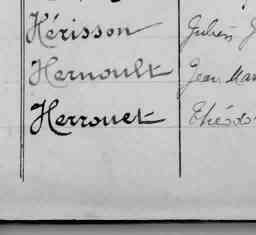 Hérisson Julien
Hernoult Jean Mar
Herrouet Théodo